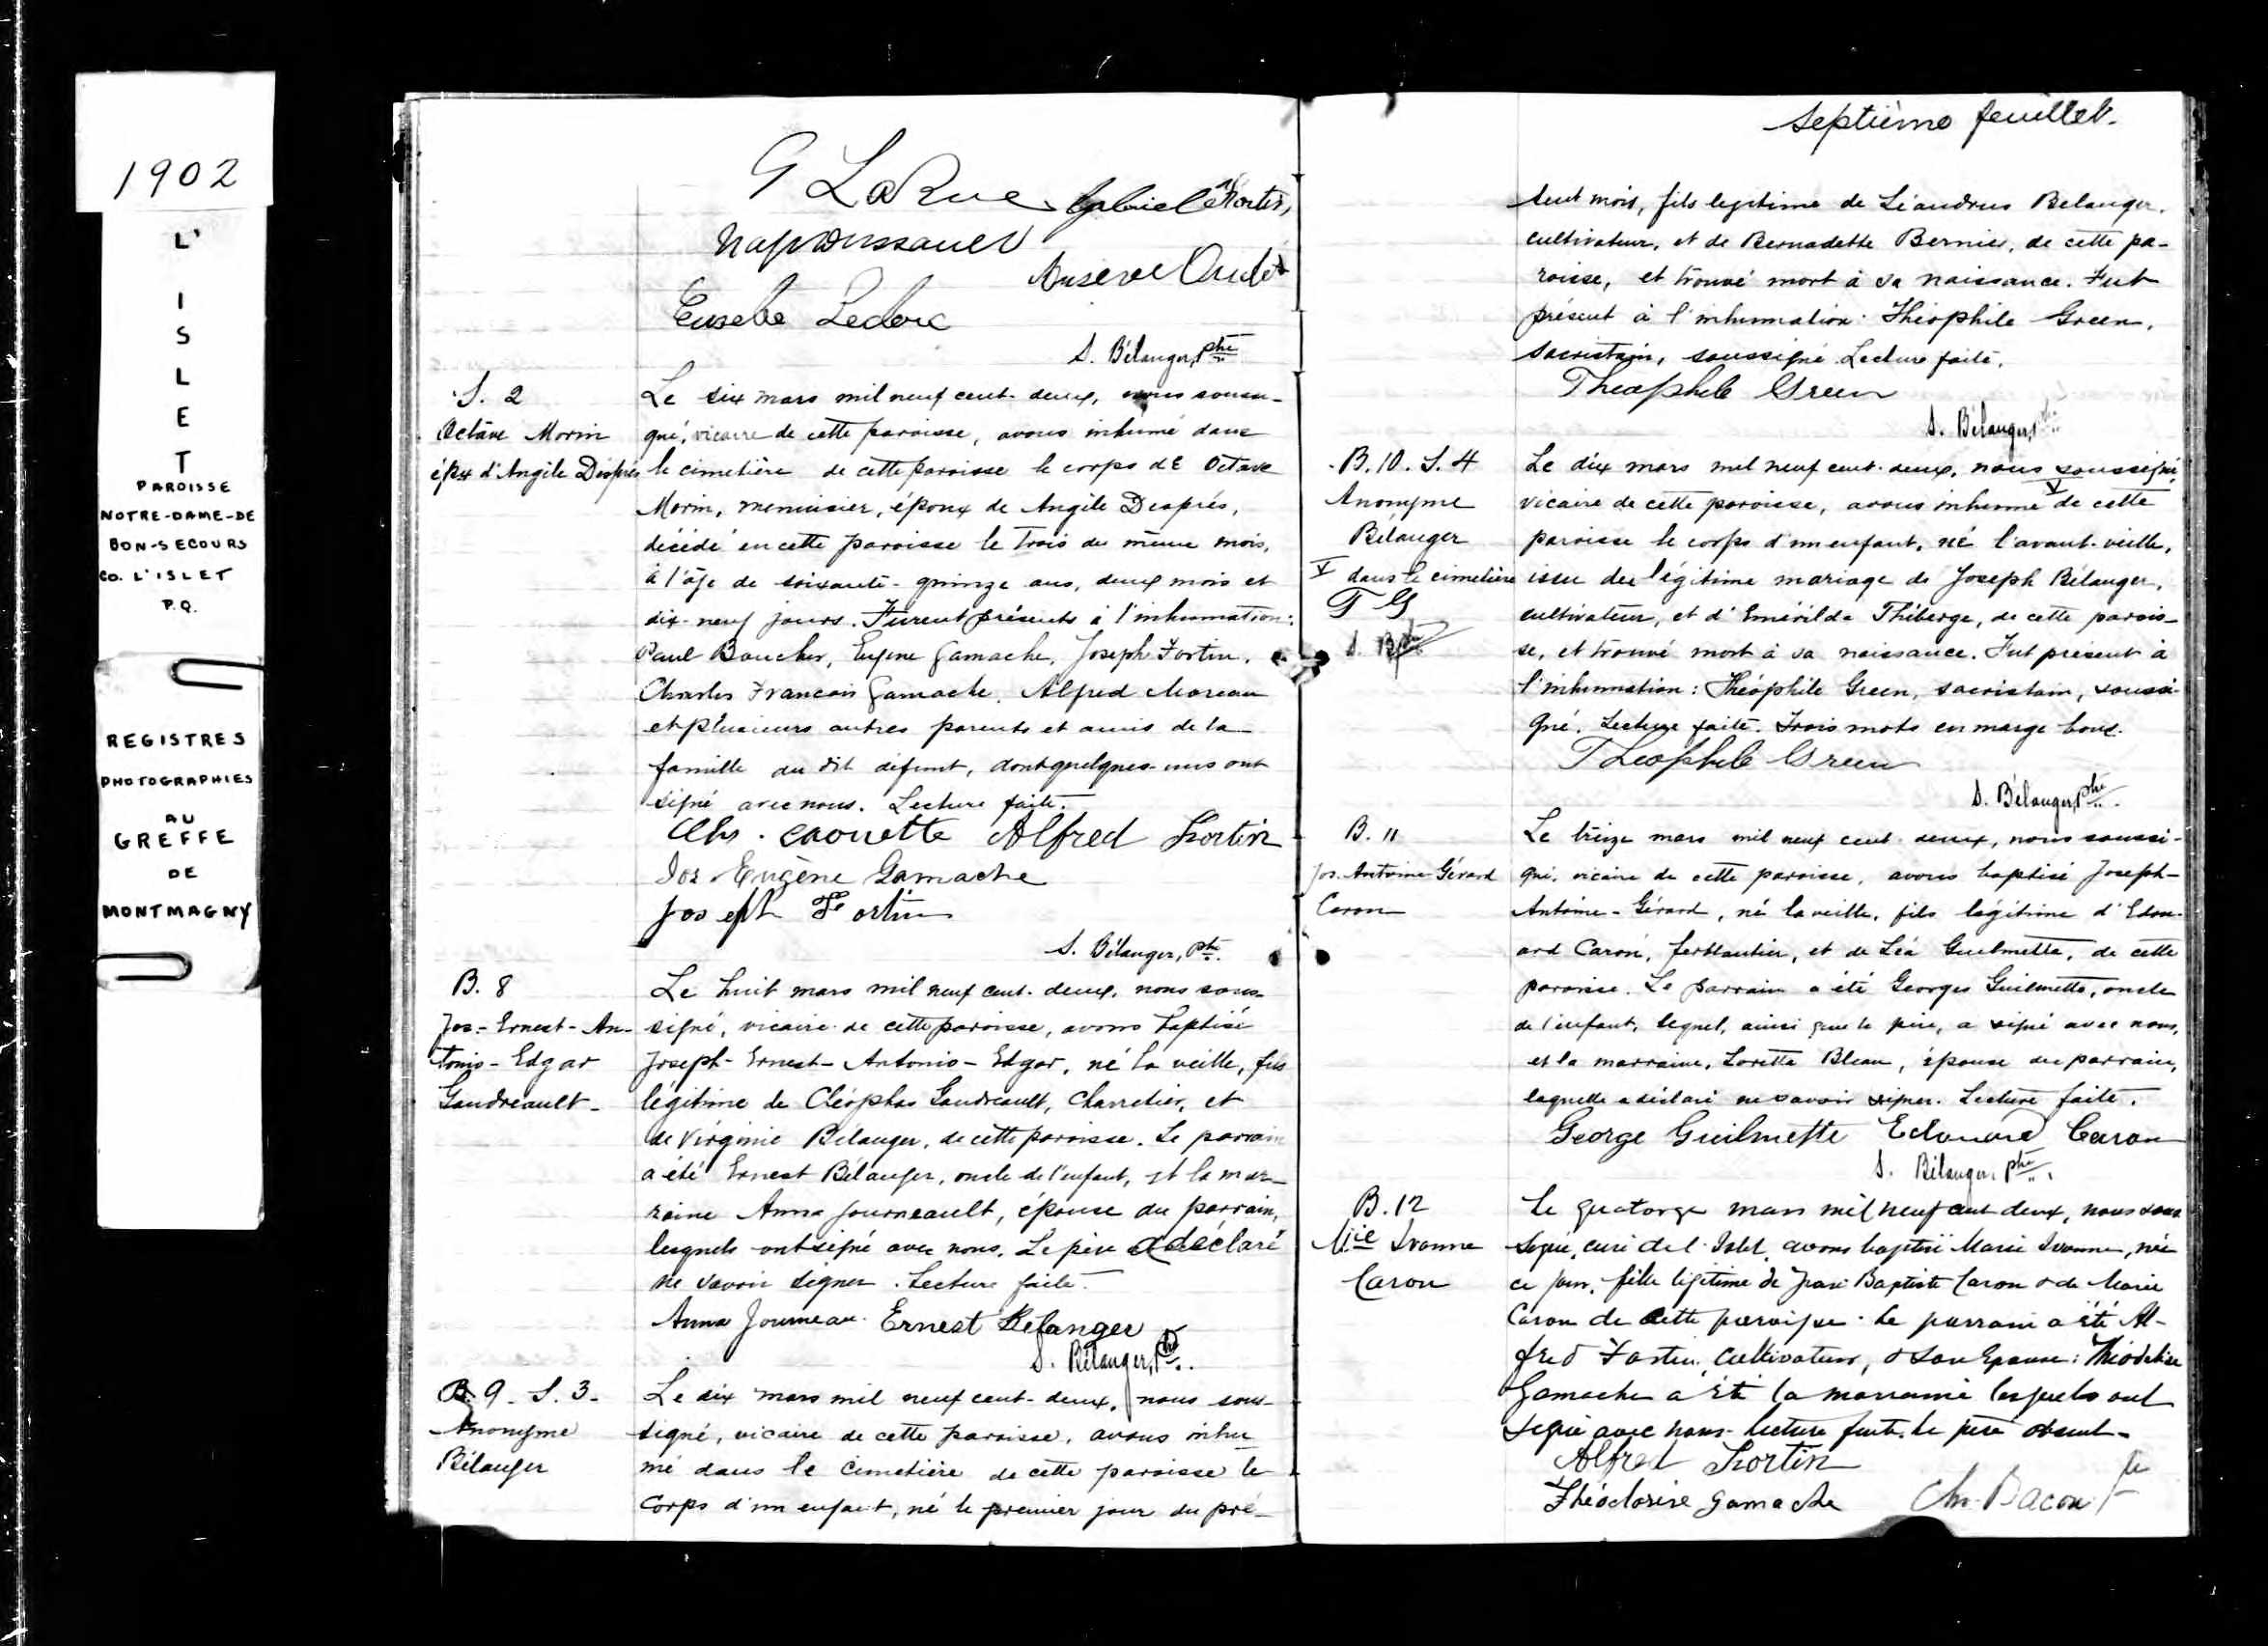 1902
L'
I
S
L
E
T
PAROISSE
NOTRE-DAME-DE
BON-SECOURS
CO. L'ISLET
P.Q.
REGISTRES
PHOTOGRAPHIES
AU
GREFFE
DE
MONTMAGNY
G LaRue Gabriel Fortin,
Nap Dussault
Audet
Eusebe Leclerc
S. Bélanger, ptre
S. 2
Octave Morin
épx d'Angèle Després
Le six mars mil neuf cent-deux, nous sous-
gné, vicaire de cette paroisse, avons inhumé dans
le cimetière de cette paroisse le corps de Octave
Morin, menuisier, époux de Angèle Després,
décédé en cette paroisse le trois du même mois,
à l'âge de soixante-quinze ans, deux mois et
dix-neuf jours. Furent présents à l'inhumation:
Paul Boucher, Eugène Gamache, Joseph Fortin,
Charles François Gamache, Alfred Moreau
et plusieurs autres parents et amis de la
famille du dit défunt, dont quelques-uns ont
signé avec nous. Lecture faite.
Chs. Caouette Alfred Fortin
Jos Eugène Gamache
Joseph Fortin
S. Bélanger, ptre.
B. 8
Jos-Ernest-An-
tonio-Edgar
Gaudreault-
Le huit mars mil neuf cent-deux, nous sous-
signé, vicaire de cette paroisse, avons baptisé
Joseph-Ernest-Antonio-Edgar, né la veille, fils
légitime de Cléophas Gaudreault, charretier, et
de Virginie Bélanger, de cette paroisse. Le parrain
a été Ernest Bélanger, oncle de l'enfant, et la mar-
raine Anna Journeault, épouse du parrain,
lesquels ont signé avec nous. Le père a déclaré
ne savoir signer. Lecture faite.
Anna Journeau Ernest Belanger
S. Bélanger, ptre.
B. 9 - S. 3 -
Anonyme
Bélanger
Le dix mars mil neuf cent-deux, nous sous-
signé, vicaire de cette paroisse, avons inhu-
mé dans le cimetière de cette paroisse le
corps d'un enfant, né le premier jour du pré-
Septième feuillet.
sent mois, fils légitime de Léandrus Bélanger,
cultivateur, et de Bernadette Bernier, de cette pa-
roisse, et trouvé mort à sa naissance. Fut
présent à l'inhumation: Théophile Green,
sacristain, soussigné. Lecture faite.
Theophile Green
S. Bélanger, ptre
B. 10. S. 4
Anonyme
Bélanger
V dans le cimetière
T G
S. B. ptre
Le dix mars mil neuf cent-deux, nous soussigné,
vicaire de cette paroisse, avons inhumé V de cette
paroisse le corps d'un enfant, né l'avant-veille,
issu du légitime mariage de Joseph Bélanger,
cultivateur, et d'Emérilda Théberge, de cette parois-
se, et trouvé mort à sa naissance. Fut présent à
l'inhumation: Théophile Green, sacristain, soussi-
gné. Lecture faite. Trois mots en marge bons.
Theophile Green
S. Bélanger, ptre.
B. 11
Jos. Antoine-Gérard
Caron
Le treize mars mil neuf cent-deux, nous soussi-
gné, vicaire de cette paroisse, avons baptisé Joseph-
Antoine-Gérard, né la veille, fils légitime d'Edou-
ard Caron, ferblantier, et de Léa Guilmette, de cette
paroisse. Le parrain a été Georges Guilmette, oncle
de l'enfant, lequel, ainsi que le père, a signé avec nous,
et la marraine, Loretta Bleau, épouse du parrain,
laquelle a déclaré ne savoir signer. Lecture faite.
George Guilmette Edouard Caron
S. Bélanger, ptre.
B. 12
Mie Ivonne
Caron
Le quatorze mars mil neuf cent deux, nous sous
signé, curé de l'Islet, avons baptisé Marie Ivonne, née
ce jour, fille légitime de Jean Baptiste Caron & de Marie
Caron de cette paroisse. Le parrain a été Al-
fred Fortin, Cultivateur, & son Epouse: Théodelise
Gamache a été la marraine lesquels ont
signé avec nous. lecture faite. le père absent.
Alfred Fortin
Théoclorise Gamache Chs. Bacon Ptre